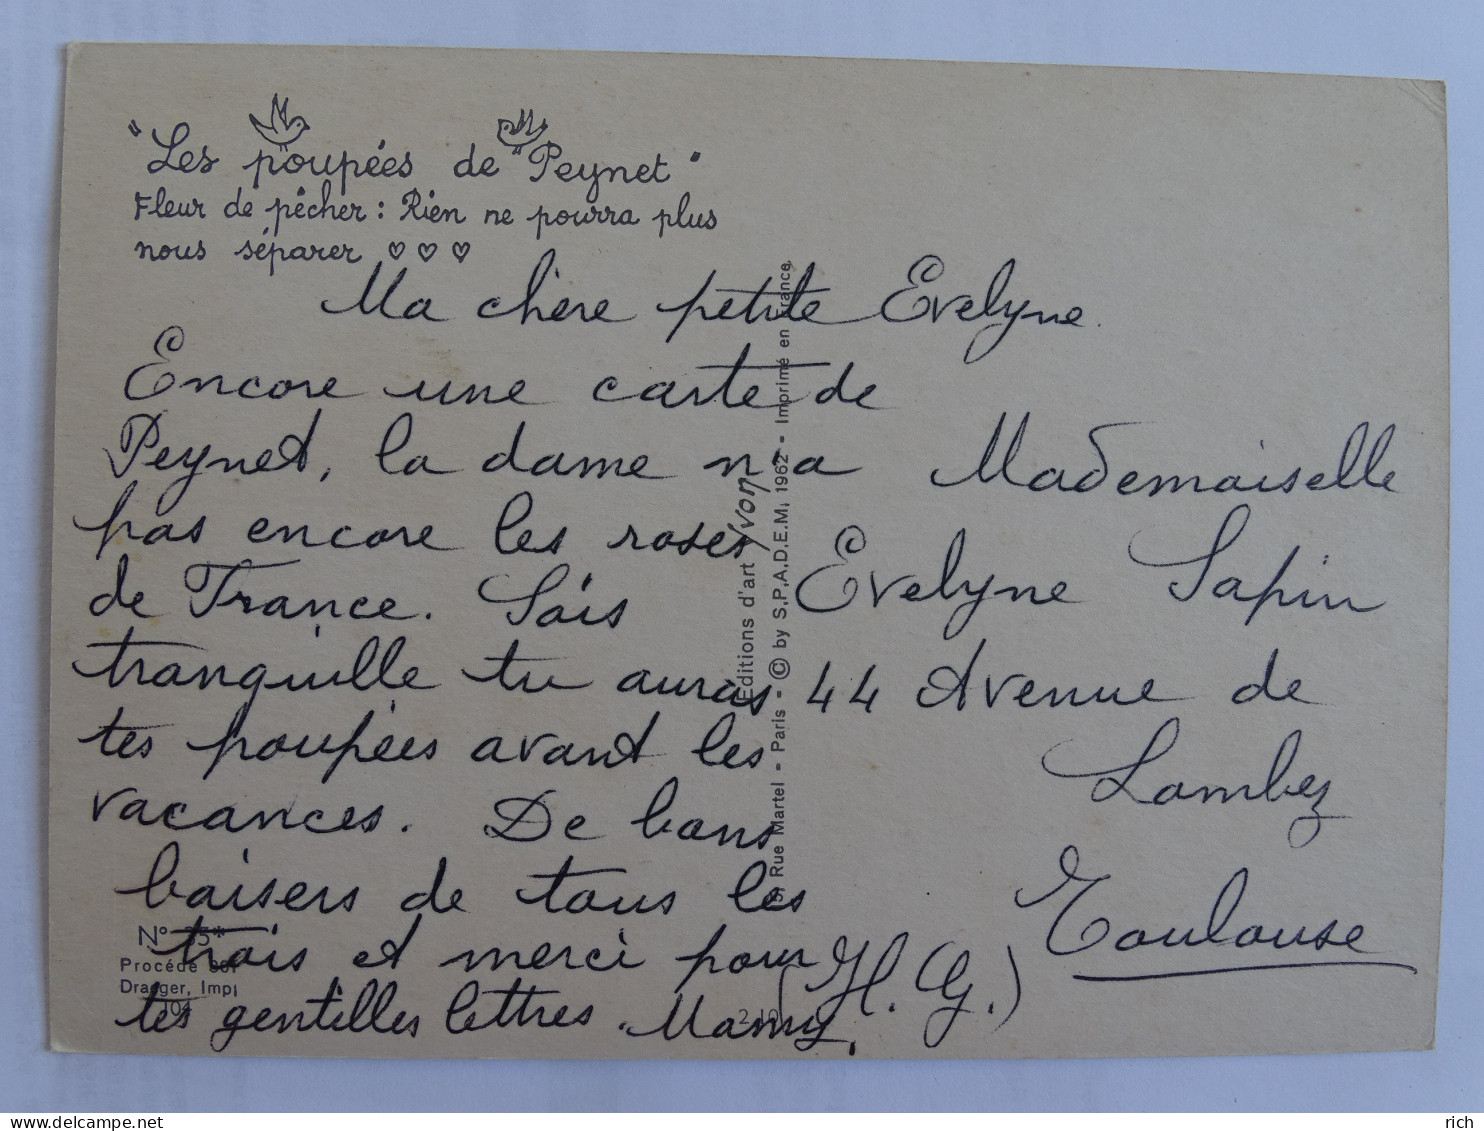 "Les poupées de Peynet"
Fleur de pêcher : Rien ne pourra plus
nous séparer ♡ ♡ ♡
Ma chère petite Evelyne
Encore une carte de
Peynet, la dame n'a
pas encore les roses
de France. Sois
tranquille tu auras
tes poupées avant les
vacances. De bons
baisers de tous les
trois et merci pour
tes gentilles lettres. Mamy.
Mademoiselle
Evelyne Sapin
44 Avenue de
Lombez
Toulouse
(H. G.)
Editions d'art Yvon
Rue Martel - Paris - © by S.P.A.D.E.M. 1962 - Imprimé en France
N°
Procédé
Draeger, Imp
delcampe.net
rich